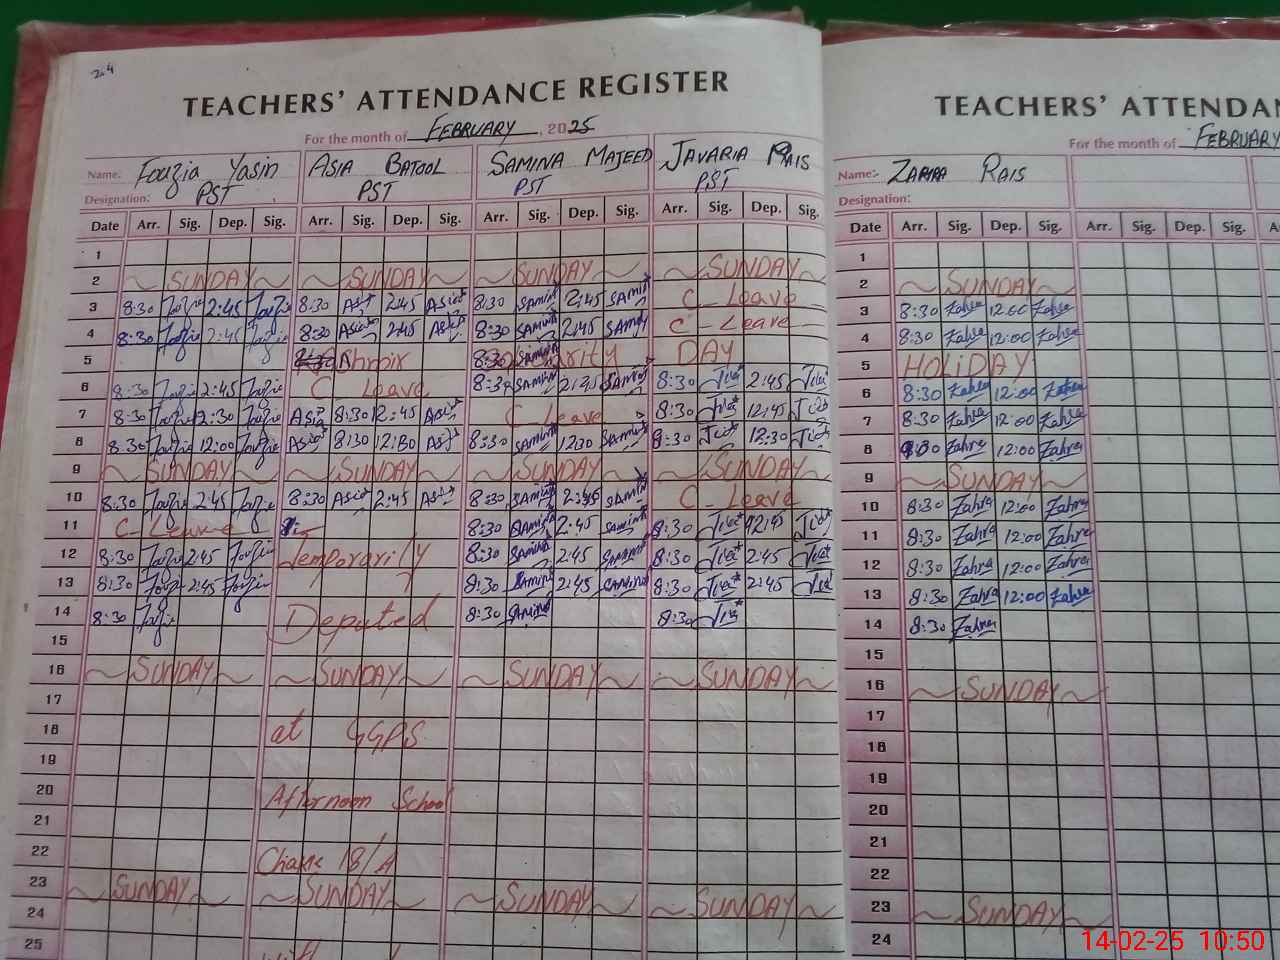 204
TEACHERS' ATTENDANCE REGISTER
For the month of FEBRUARY, 2025
Name: Fouzia Yasin ASIA BATOOL SAMINA MAJEED JAVARIA RAIS
Designation: PST PST PST PST
Date Arr. Sig. Dep. Sig. Arr. Sig. Dep. Sig. Arr. Sig. Dep. Sig. Arr. Sig. Dep. Sig.
1
2 SUNDAY SUNDAY SUNDAY SUNDAY
3 8:30 Fouzia 2:45 Fouzia 8:30 Asia 2:45 Asia 8:30 Samina 2:45 Samina C-Leave
4 8:30 Fouzia 2:45 Fouzia 8:30 Asia 2:45 Asia 8:30 Samina 2:45 Samina C-Leave
5 DAY
6 8:30 Fouzia 2:45 Fouzia C Leave 8:30 Samina 2:45 Samina 8:30 2:45
7 8:30 Fouzia 2:30 Fouzia Asia 8:30 12:45 Asia C Leave 8:30 12:45
8 8:30 Fouzia 12:00 Fouzia Asia 8:30 12:30 Asia 8:30 Samina 12:30 Samina 8:30 12:30
9 SUNDAY SUNDAY SUNDAY SUNDAY
10 8:30 Fouzia 2:45 Fouzia 8:30 Asia 2:45 Asia 8:30 Samina 2:45 Samina C-Leave
11 C-Leave 8:30 Samina 2:45 Samina 8:30 2:45
12 8:30 Fouzia 2:45 Fouzia Temporarily 8:30 Samina 2:45 Samina 8:30 2:45
13 8:30 Fouzia 2:45 Fouzia 8:30 Samina 2:45 Samina 8:30 2:45
14 8:30 Fouzia Deputed 8:30 Samina 8:30
15
16 SUNDAY SUNDAY SUNDAY SUNDAY
17
18 at GGPS
19
20 Afternoon School
21
22 Chak 18/A
23 SUNDAY SUNDAY SUNDAY SUNDAY
24
25 with
TEACHERS' ATTENDAN
For the month of FEBRUARY
Name:- ZAHRA RAIS
Designation:
Date Arr. Sig. Dep. Sig. Arr. Sig. Dep. Sig.
1
2 SUNDAY
3 8:30 Zahra 12:00 Zahra
4 8:30 Zahra 12:00 Zahra
5 HOLIDAY
6 8:30 Zahra 12:00 Zahra
7 8:30 Zahra 12:00 Zahra
8 8:30 Zahra 12:00 Zahra
9 SUNDAY
10 8:30 Zahra 12:00 Zahra
11 8:30 Zahra 12:00 Zahra
12 8:30 Zahra 12:00 Zahra
13 8:30 Zahra 12:00 Zahra
14 8:30 Zahra
15
16 SUNDAY
17
18
19
20
21
22
23 SUNDAY
24
14-02-25 10:50